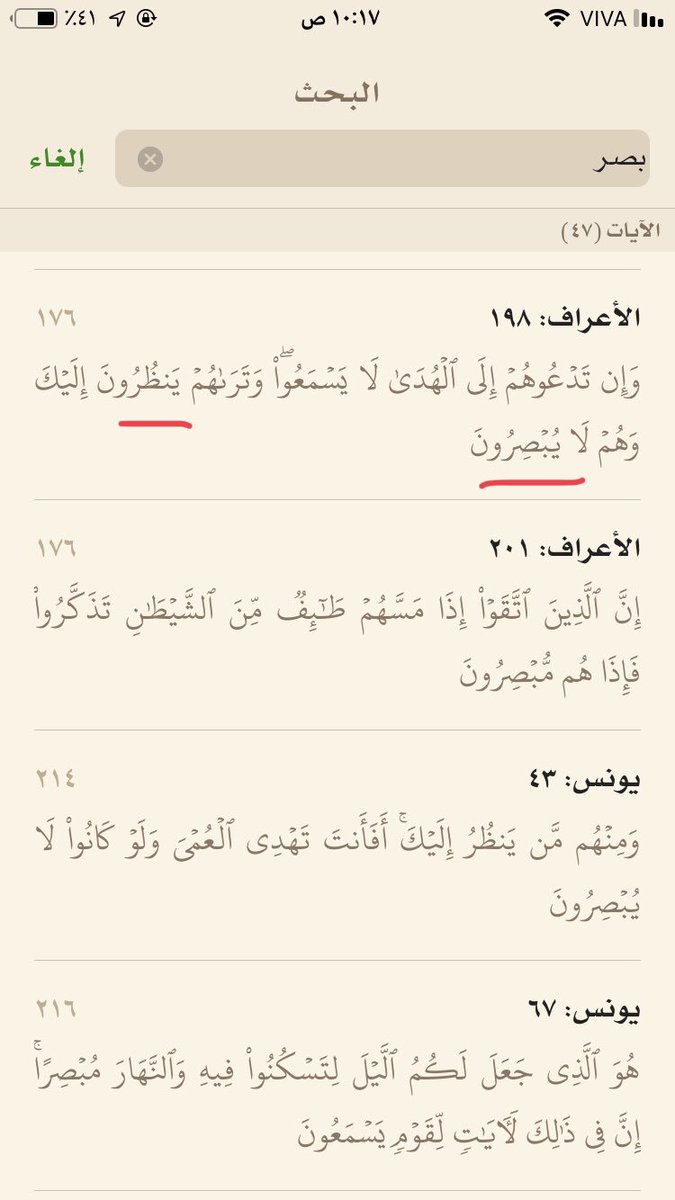 ٪٤١ ١٠:١٧ ص VIVA
البحث
بصر إلغاء
الآيات (٤٧)
الأعراف: ١٩٨ ١٧٦
وَإِن تَدۡعُوهُمۡ إِلَى ٱلۡهُدَىٰ لَا يَسۡمَعُواْۖ وَتَرَىٰهُمۡ يَنظُرُونَ إِلَيۡكَ
وَهُمۡ لَا يُبۡصِرُونَ
الأعراف: ٢٠١ ١٧٦
إِنَّ ٱلَّذِينَ ٱتَّقَوۡاْ إِذَا مَسَّهُمۡ طَٰٓئِفٞ مِّنَ ٱلشَّيۡطَٰنِ تَذَكَّرُواْ
فَإِذَا هُم مُّبۡصِرُونَ
يونس: ٤٣ ٢١٤
وَمِنۡهُم مَّن يَنظُرُ إِلَيۡكَۚ أَفَأَنتَ تَهۡدِي ٱلۡعُمۡيَ وَلَوۡ كَانُواْ لَا
يُبۡصِرُونَ
يونس: ٦٧ ٢١٦
هُوَ ٱلَّذِي جَعَلَ لَكُمُ ٱلَّيۡلَ لِتَسۡكُنُواْ فِيهِ وَٱلنَّهَارَ مُبۡصِرًاۚ
إِنَّ فِي ذَٰلِكَ لَأٓيَٰتٖ لِّقَوۡمٖ يَسۡمَعُونَ